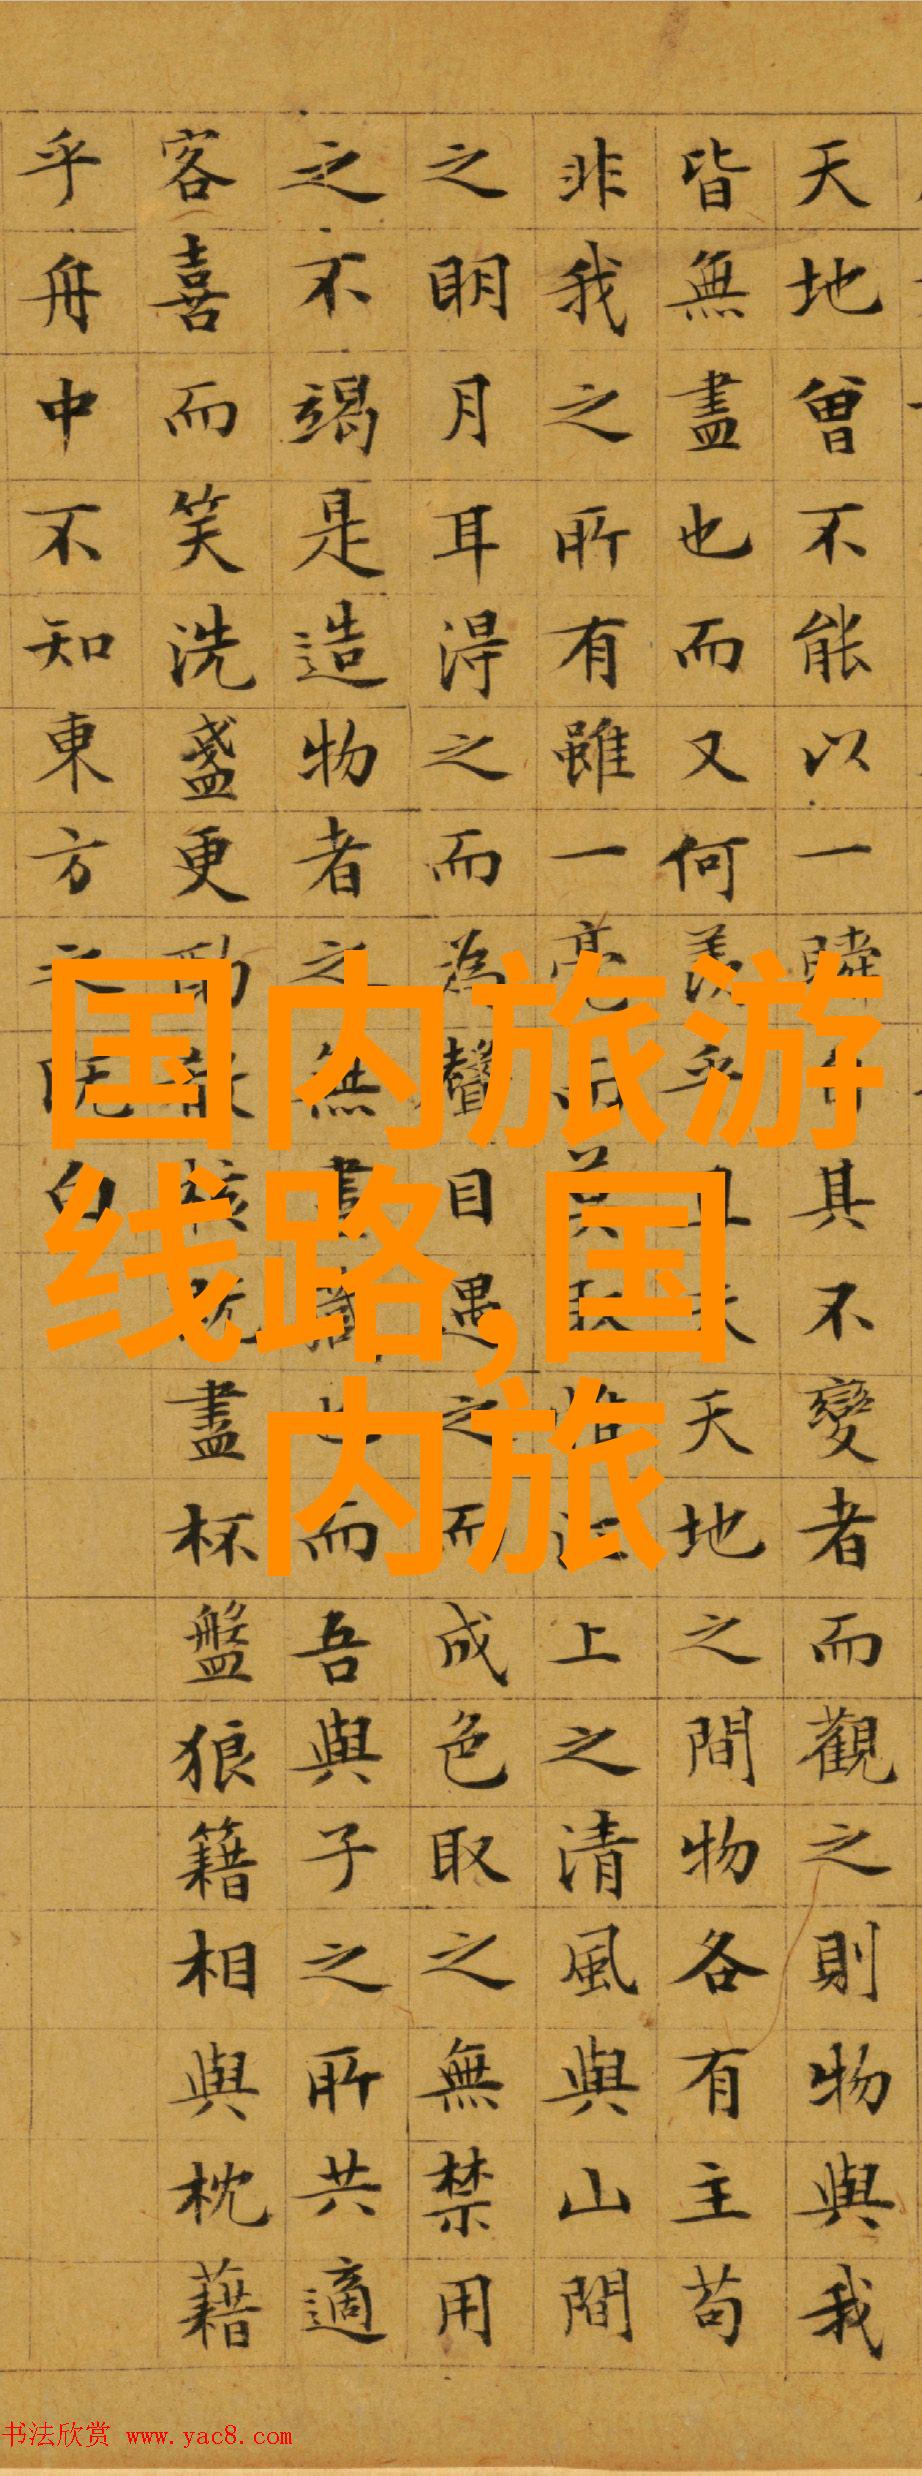 天地曾不能以一瞬自其不變者而觀之則物與我
皆無盡也而又何羨乎且夫天地之間物各有主苟
非我之所有雖一毫而莫取惟江上之清風與山間
之明月耳得之而為聲目遇之而成色取之無禁用
之不竭是造物者之無盡藏也而吾與子之所共適
客喜而笑洗盞更酌肴核既盡杯盤狼籍相與枕藉
乎舟中不知東方之既白
国内旅游
线路,国
内旅
书法欣赏 www.yac8.com